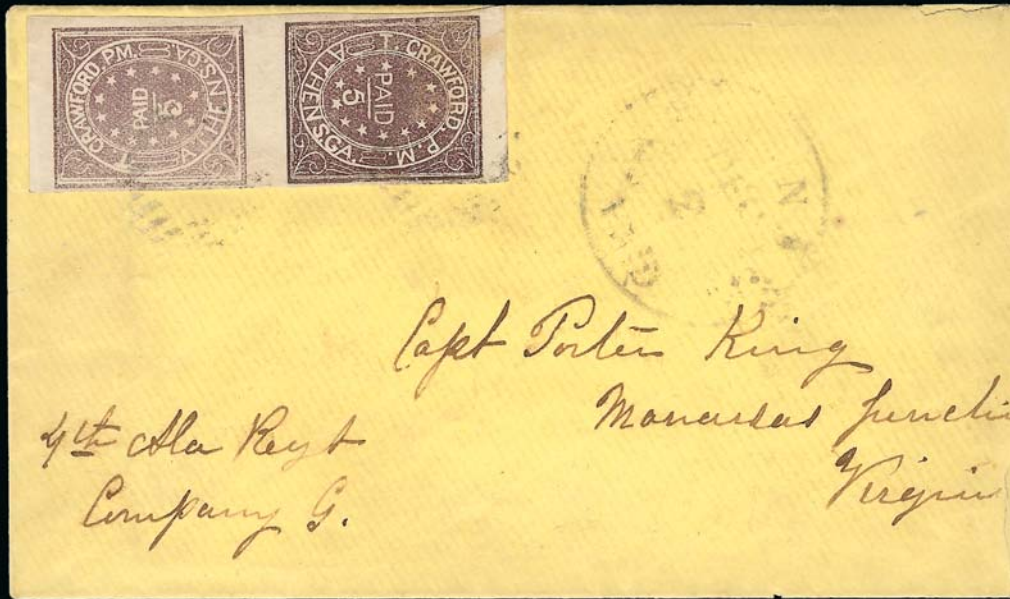 T. CRAWFORD, P.M.
ATHENS.GA.
PAID
5
T. CRAWFORD, P.M.
ATHENS.GA.
PAID
5
Capt Porter King
Manassas
4th Ala Regt
Company G.